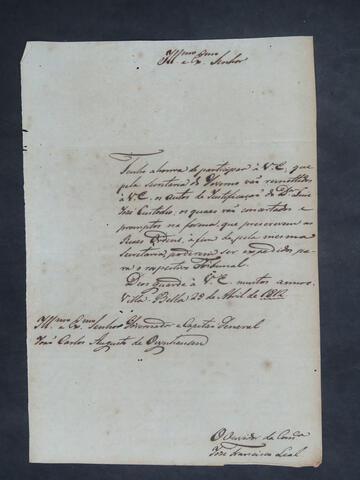 Ill.mo e Ex.mo Senhor
Tenho a honra de participar à V. E., que
pela Secretaria do Governo vão remettidos
à V. E. os autos de Justificação do D.or Luiz
José Custodio, os quaes vão concertados e
promptos na forma, que prescrevem as
Reaes Ordens, à fim de pela mesma
Secretaria poderem ser expedidos pa-
ra o respectivo Tribunal.
Deos guarde à V. E. muitos annos.
Villa Bella 29 de Abril de 1812
Ill.mo e Ex.mo Senhor Governador e Capitão General
João Carlos Augusto de Oeynhausen
O Ouvidor da Com.ca
José Francisco Leal